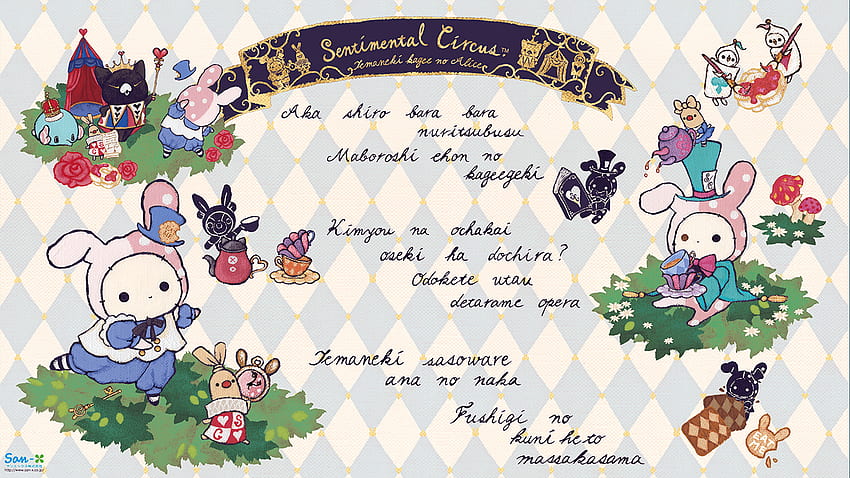 Sentimental Circus™
Temaneki kagee no Alice
Aka shiro bara bara
nuritsubusu
Maboroshi ehon no
kageegeki
Kimyou na ochakai
oseki ha dochira?
Odokete utau
detarame opera
Temaneki sasoware
ana no naka
Fushigi no
kuni he to
massakasama
S
G
EAT
ME
San-X
サンエックス株式会社
http://www.san-x.co.jp/